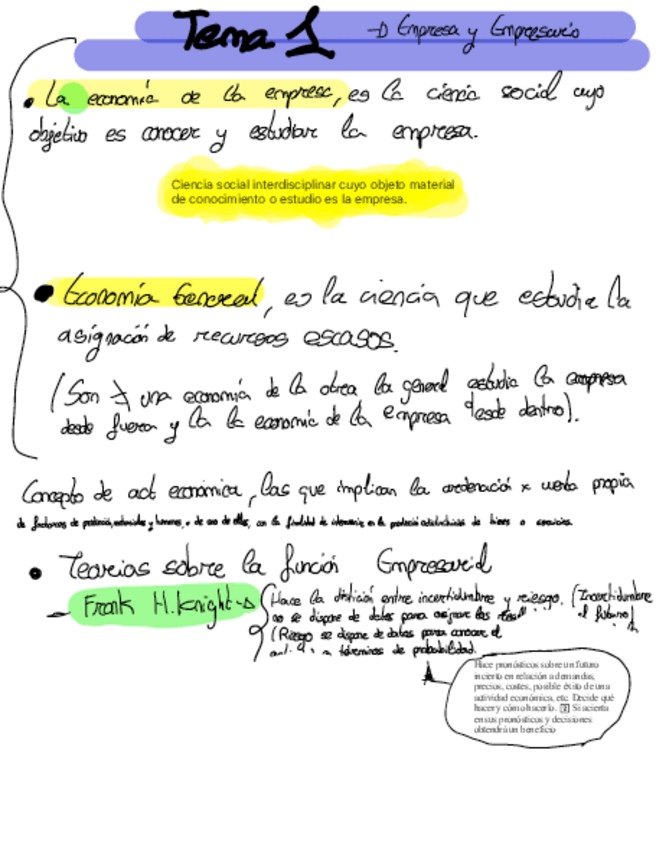 Tema 1 → Empresa y Empresario
• La economía de la empresa, es la ciencia social cuyo
objetivo es conocer y estudiar la empresa.
Ciencia social interdisciplinar cuyo objeto material
de conocimiento o estudio es la empresa.
• Economía General, es la ciencia que estudia la
asignación de recursos escasos.
(Son ≠ una economía de la otra, la general estudia la empresa
desde fuera y la la economía de la empresa desde dentro).
Concepto de act económica, las que implican la ordenación x cuenta propia
de factores de producción, materiales y humanos, o de uno de ellos, con la finalidad de intervenir en la producción o distribución de bienes o servicios.
• Teorías sobre la función Empresarial
– Frank H. Knight →
Hace la distición entre incertidumbre y riesgo. (Incertidumbre
no se dispone de datos para asignar las
el futuro)
(Riesgo se dispone de datos para conocer el
en términos de probabilidad.
Hace pronósticos sobre un futuro
incierto en relación a demandas,
precios, costes, posible éxito de una
actividad económica, etc. Decide qué
hacer y cómo hacerlo. Si acierta
en sus pronósticos y decisiones
obtendrá un beneficio